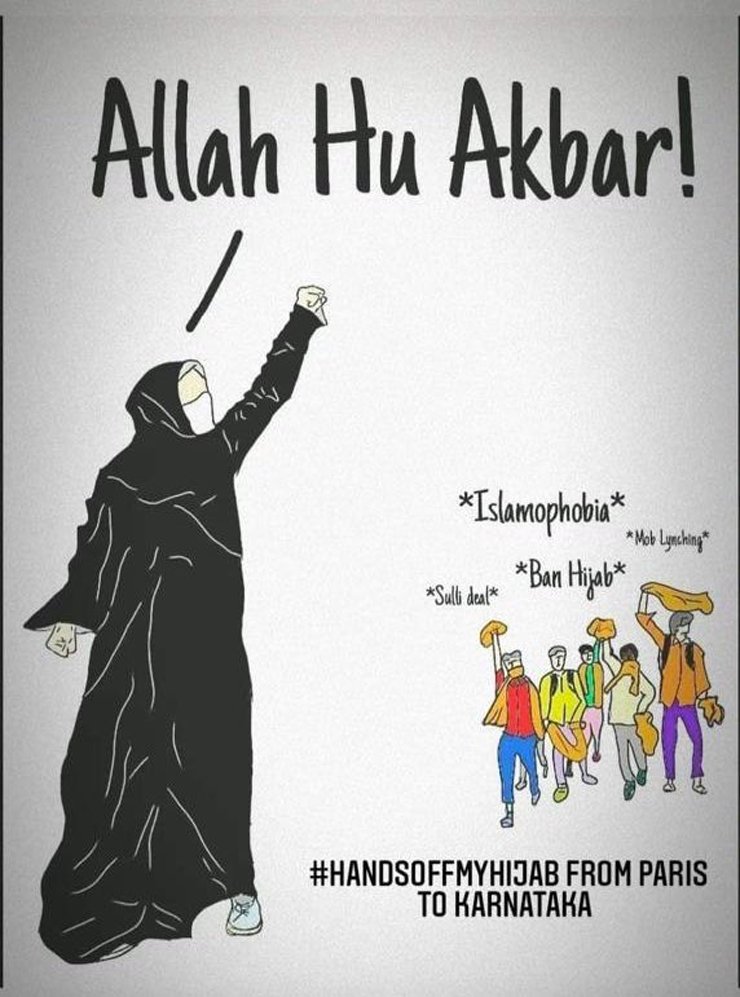 Allah Hu Akbar!
*Islamophobia*
*Mob Lynching*
*Ban Hijab*
*Sulli deal*
#HANDSOFFMYHIJAB FROM PARIS
TO KARNATAKA